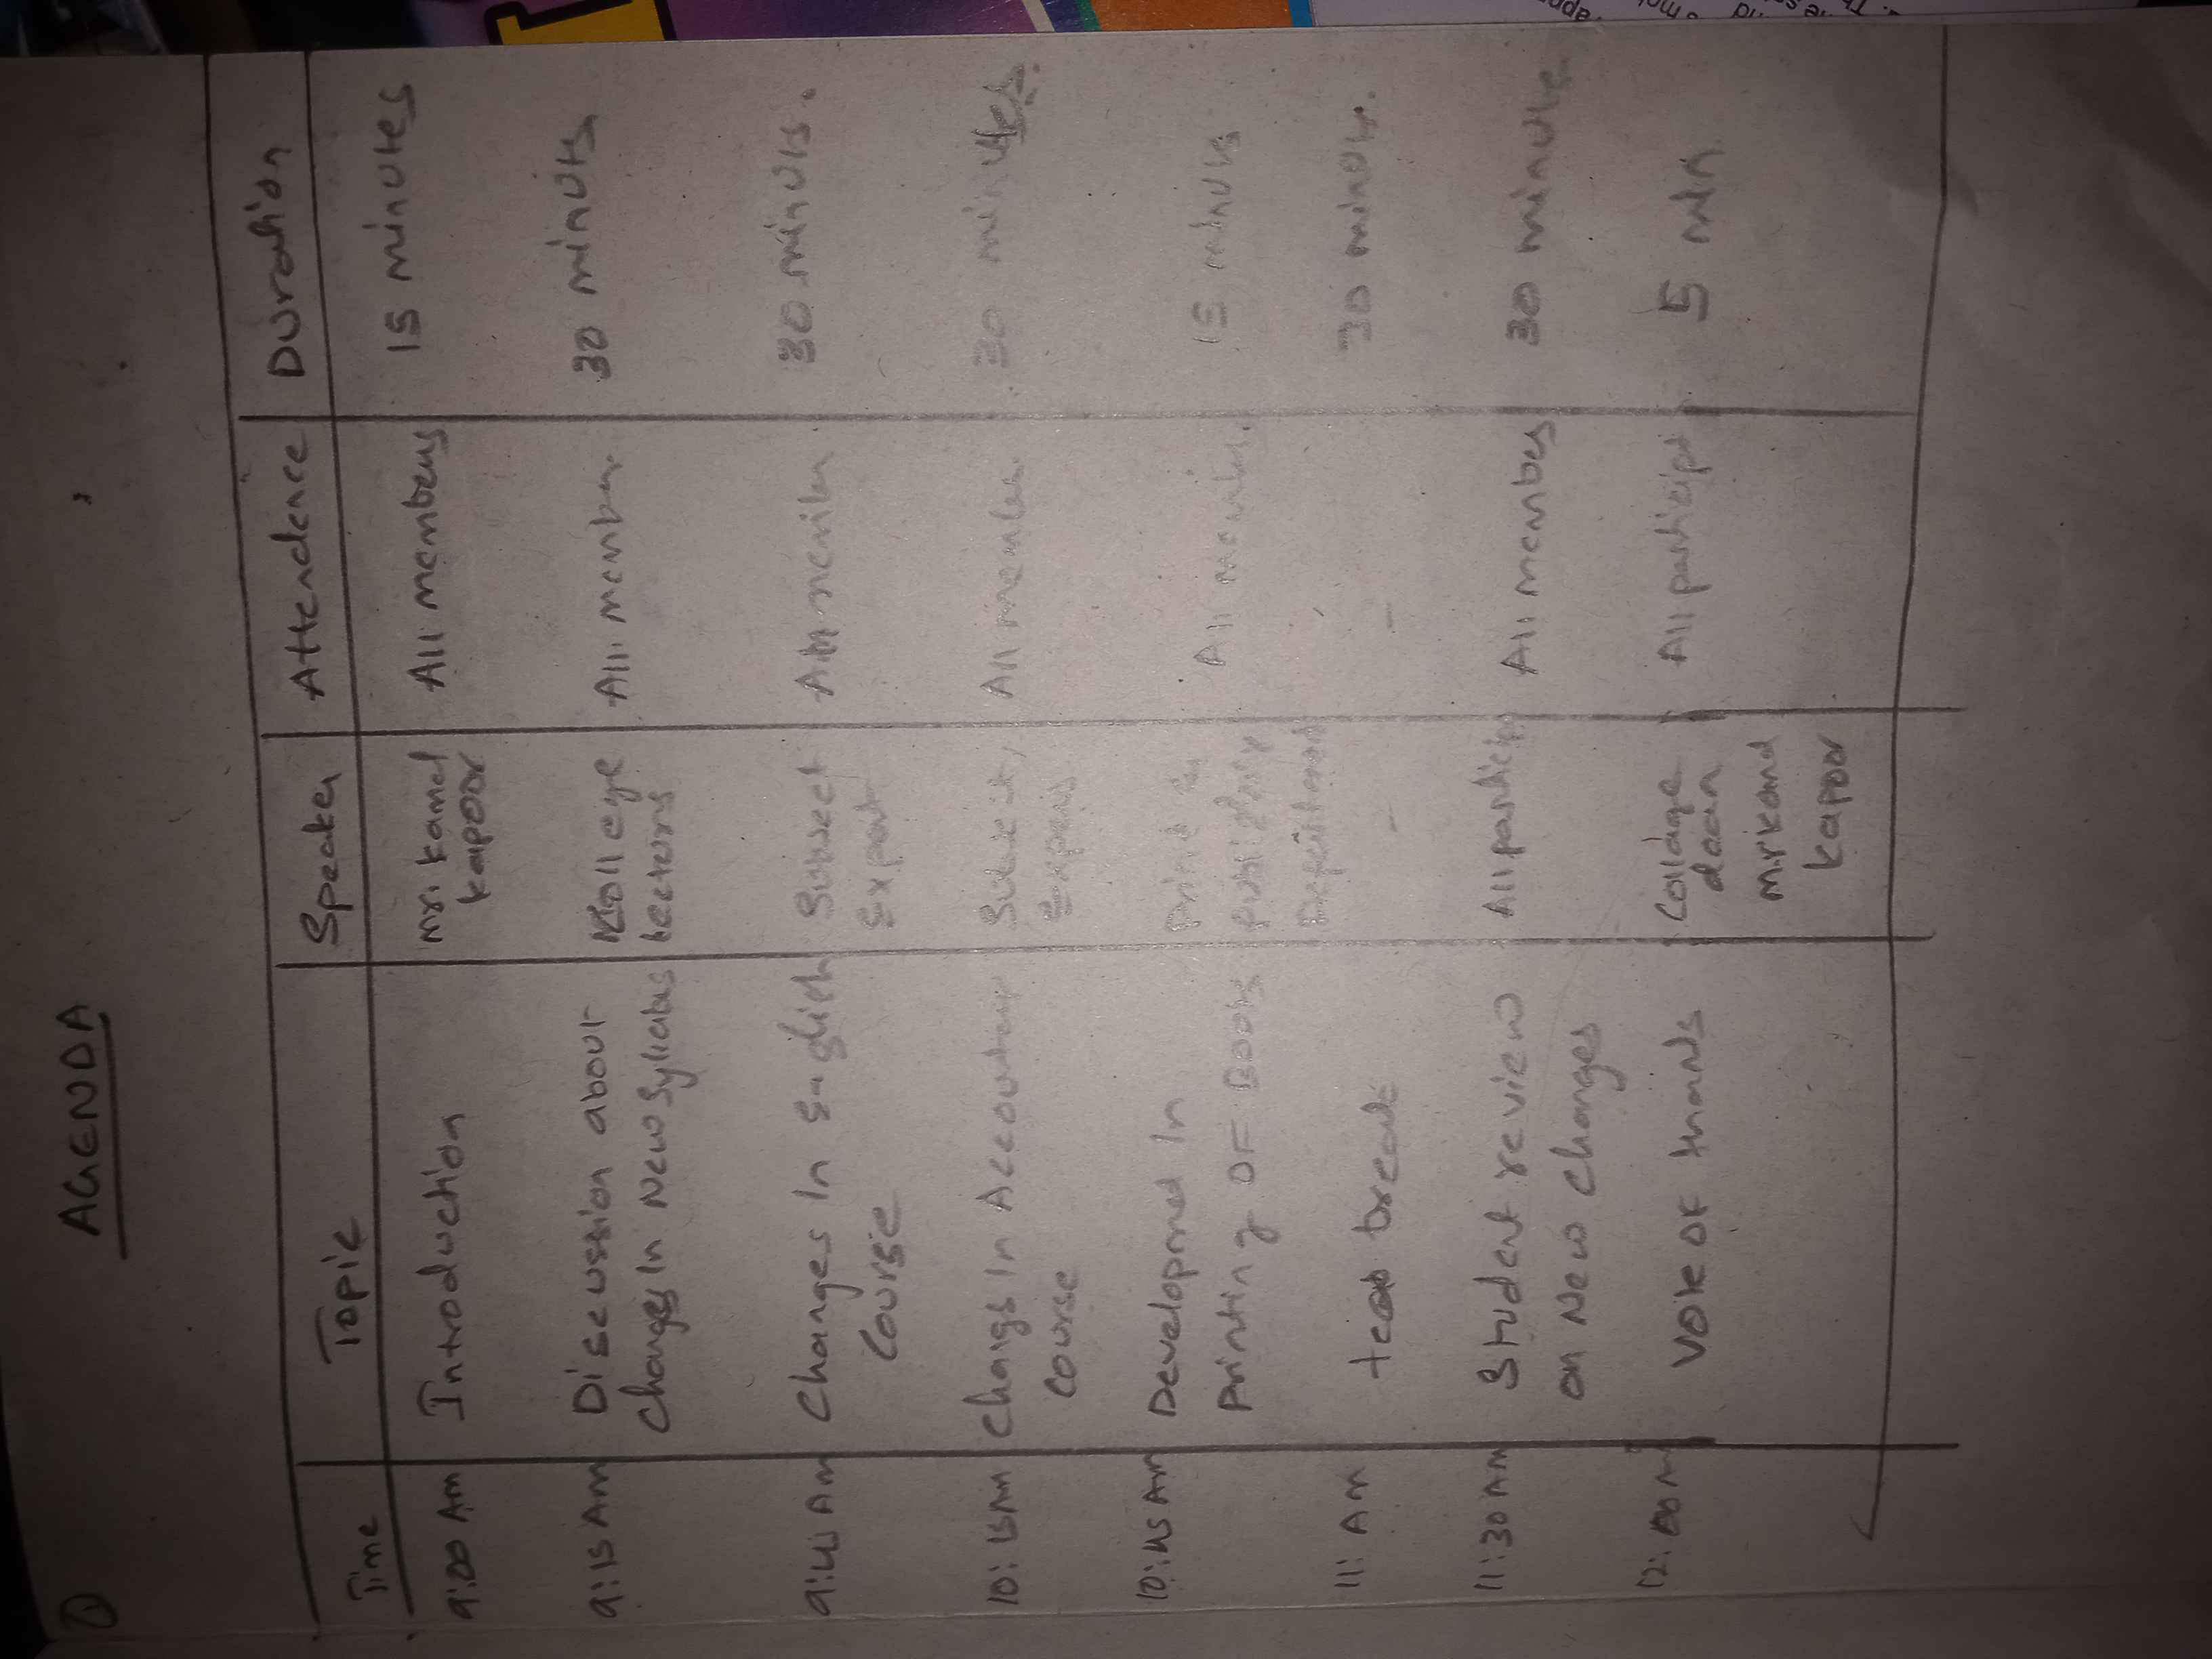 ①
AGENDA
Time Topic Speaker Attendence Duration
9:00 Am Introduction mr. kamal All members 15 minutes
kapoor
9:15 Am Discussion about College All member 30 minuts
Changes In New Syllabus lecturers
9:45 Am Changes In English Subject All member 30 minuts.
Course Expert
10:15 Am Changs In Accountancy Subject All member 30 minutes.
Course Expert
10:45 Am Developmed In Print & All member. 15 minuts
Printing OF Books publishing
11: Am tea break - - 30 minuts.
11:30 Am Student review All particip All members 30 minute
on New Changes
12:00 Vote OF thanks Collage All particips 5 min
dean
mr kamal
kapoor